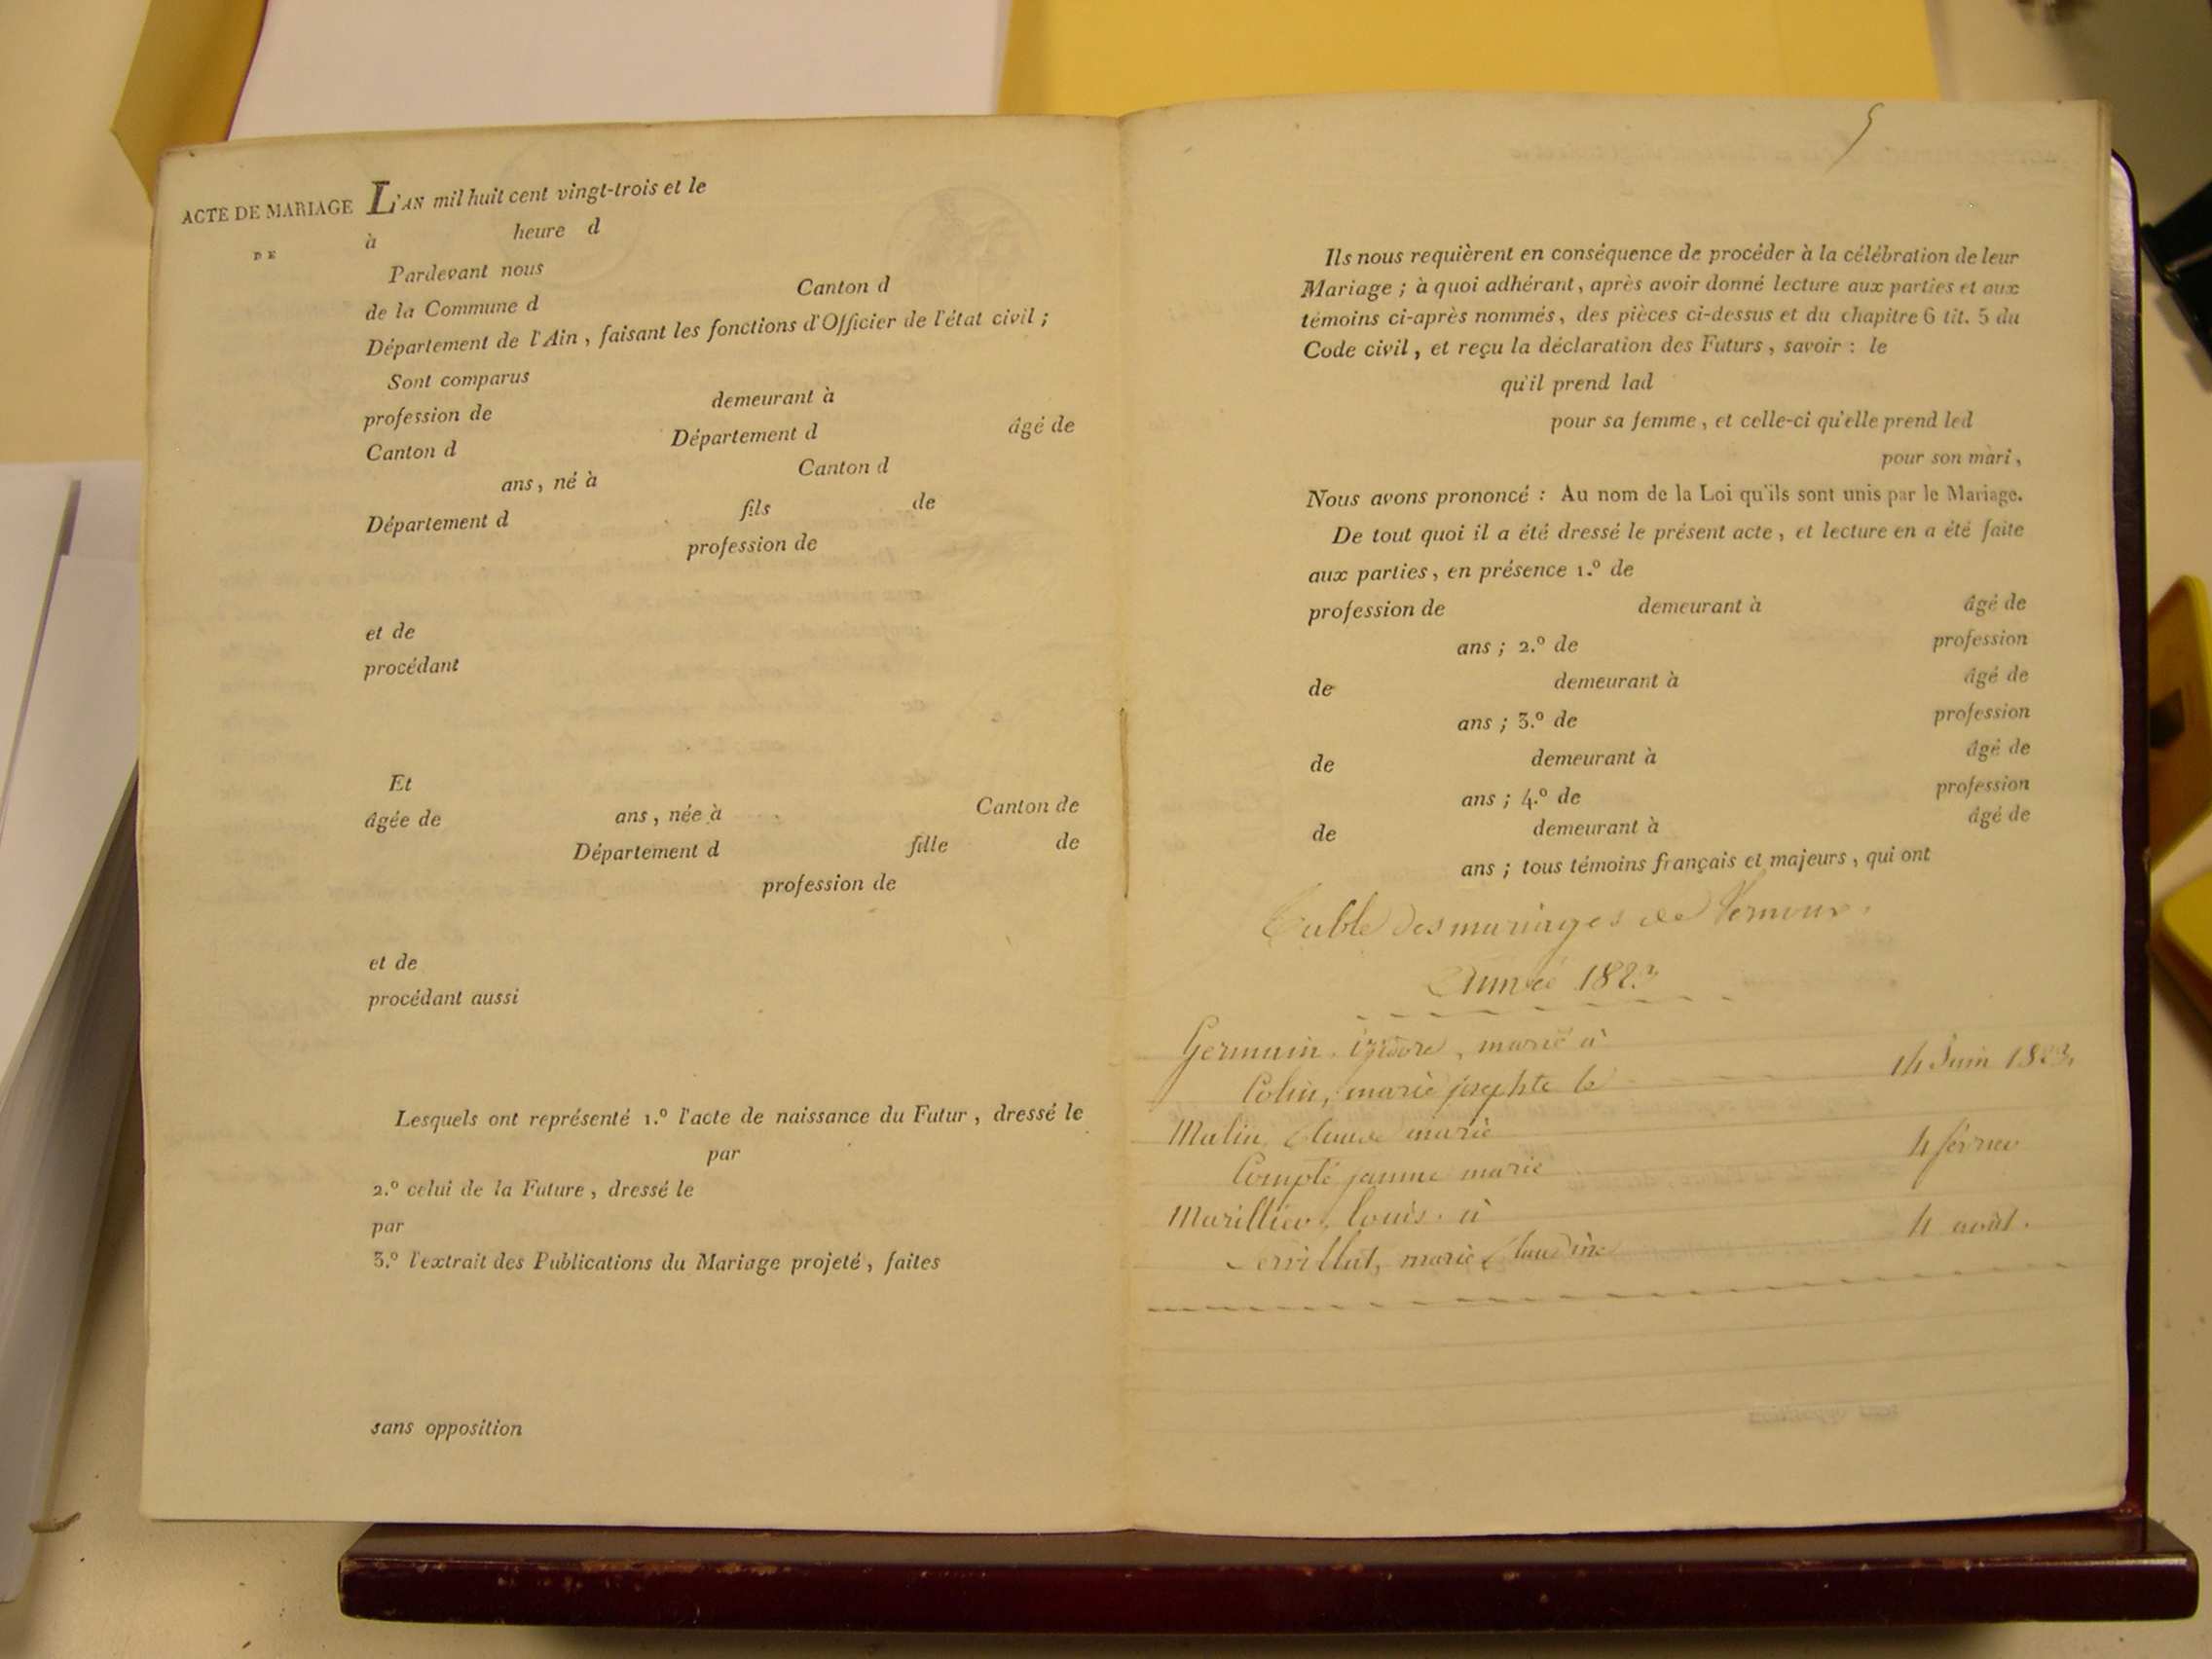 ACTE DE MARIAGE
DE
L'AN mil huit cent vingt-trois et le
à heure d
Pardevant nous
de la Commune d Canton d
Département de l'Ain, faisant les fonctions d'Officier de l'état civil ;
Sont comparus
profession de demeurant à
Canton d Département d âgé de
ans, né à Canton d
Département d fils de
profession de
et de
procédant
Et
âgée de ans, née à Canton de
Département d fille de
profession de
et de
procédant aussi
Lesquels ont représenté 1.º l'acte de naissance du Futur, dressé le
par
2.º celui de la Future, dressé le
par
3.º l'extrait des Publications du Mariage projeté, faites
sans opposition
5
Ils nous requièrent en conséquence de procéder à la célébration de leur
Mariage ; à quoi adhérant, après avoir donné lecture aux parties et aux
témoins ci-après nommés, des pièces ci-dessus et du chapitre 6 tit. 5 du
Code civil, et reçu la déclaration des Futurs, savoir : le
qu'il prend lad
pour sa femme, et celle-ci qu'elle prend led
pour son mari,
Nous avons prononcé : Au nom de la Loi qu'ils sont unis par le Mariage.
De tout quoi il a été dressé le présent acte, et lecture en a été faite
aux parties, en présence 1.º de
profession de demeurant à âgé de
ans ; 2.º de profession
de demeurant à âgé de
ans ; 3.º de profession
de demeurant à âgé de
ans ; 4.º de profession
de demeurant à âgé de
ans ; tous témoins français et majeurs, qui ont
Table des mariages de Vernoux.
Année 1823
Germain, marié à
Colin, marie josephte le 14 Juin 1823
Malin Claude marie
Compte jeanne marie 4 février
Marillier, louis. à
marie Claudine 4 août.